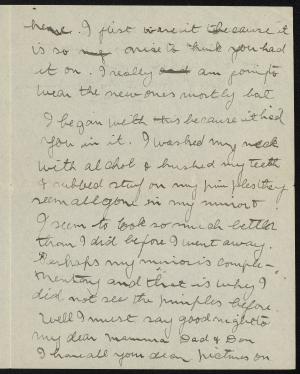 here. I first wore it because it
is so nice to think you had
it on. I really am going to
wear the new ones mostly but
I began with this because it had
you in it. I washed my neck
with alchol & brushed my teeth
& rubbed stuff on my pimples they
seem all gone in my mirror
I seem to look so much better
than I did before I went away.
Perhaps my mirror is comple-
mentary and that is why I
did not see the pimples before.
Well I must say good night to
my dear Mamma Dad & Don
I have all your dear pictures on